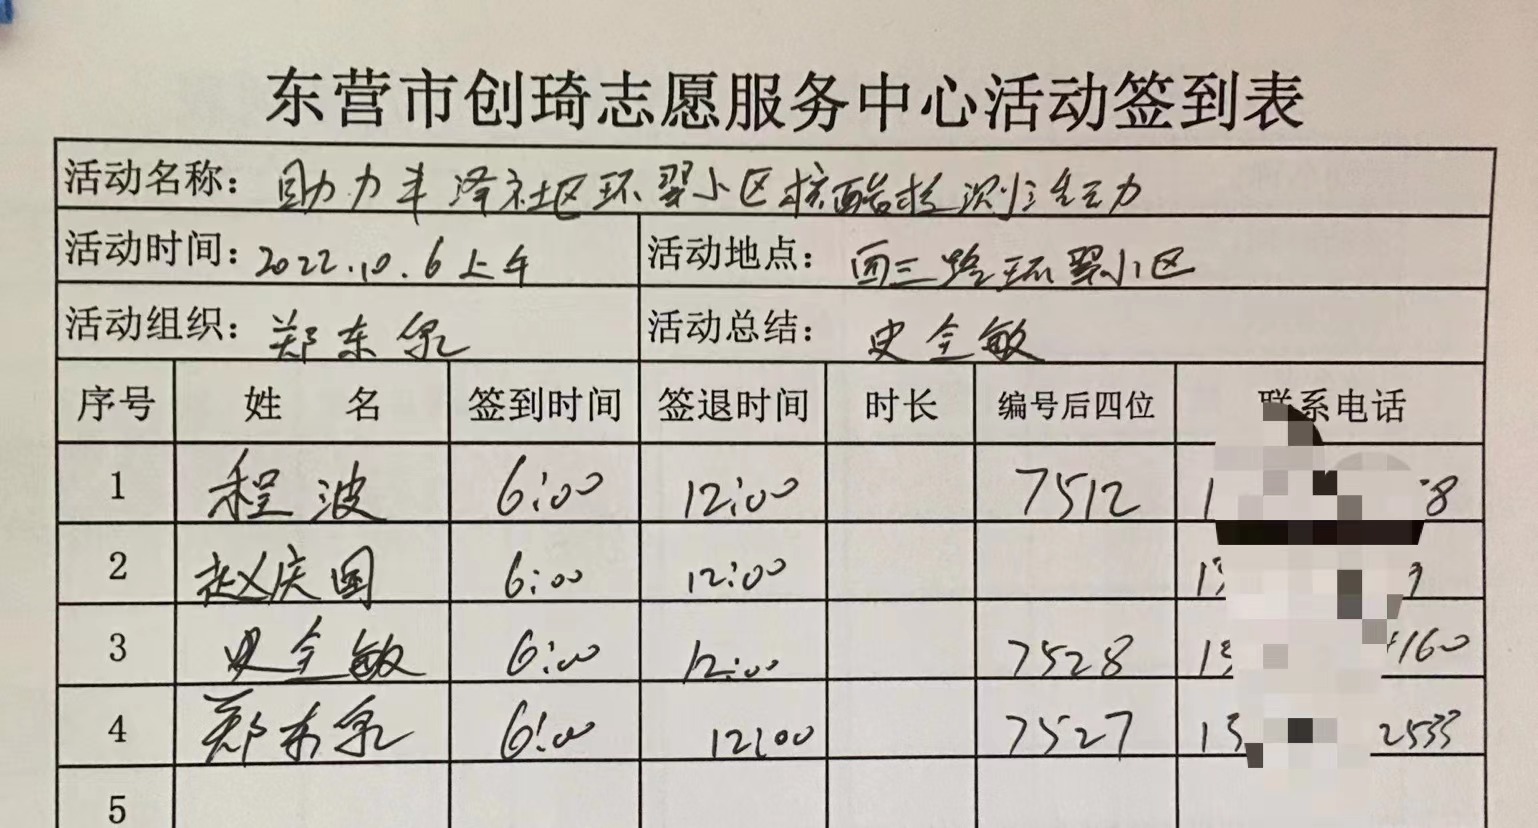 东营市创琦志愿服务中心活动签到表
活动名称: 助力丰泽社区环翠小区核酸检测活动
活动时间: 2022.10.6上午 活动地点: 西三路环翠小区
活动组织: 郑东泉 活动总结: 史全敏
序号 姓 名 签到时间 签退时间 时长 编号后四位 联系电话
1 程波 6:00 12:00 7512 1 8
2 赵庆国 6:00 12:00 13
3 史全敏 6:00 12:00 7528 13 160
4 郑东泉 6:00 12:00 7527 13 2533
5